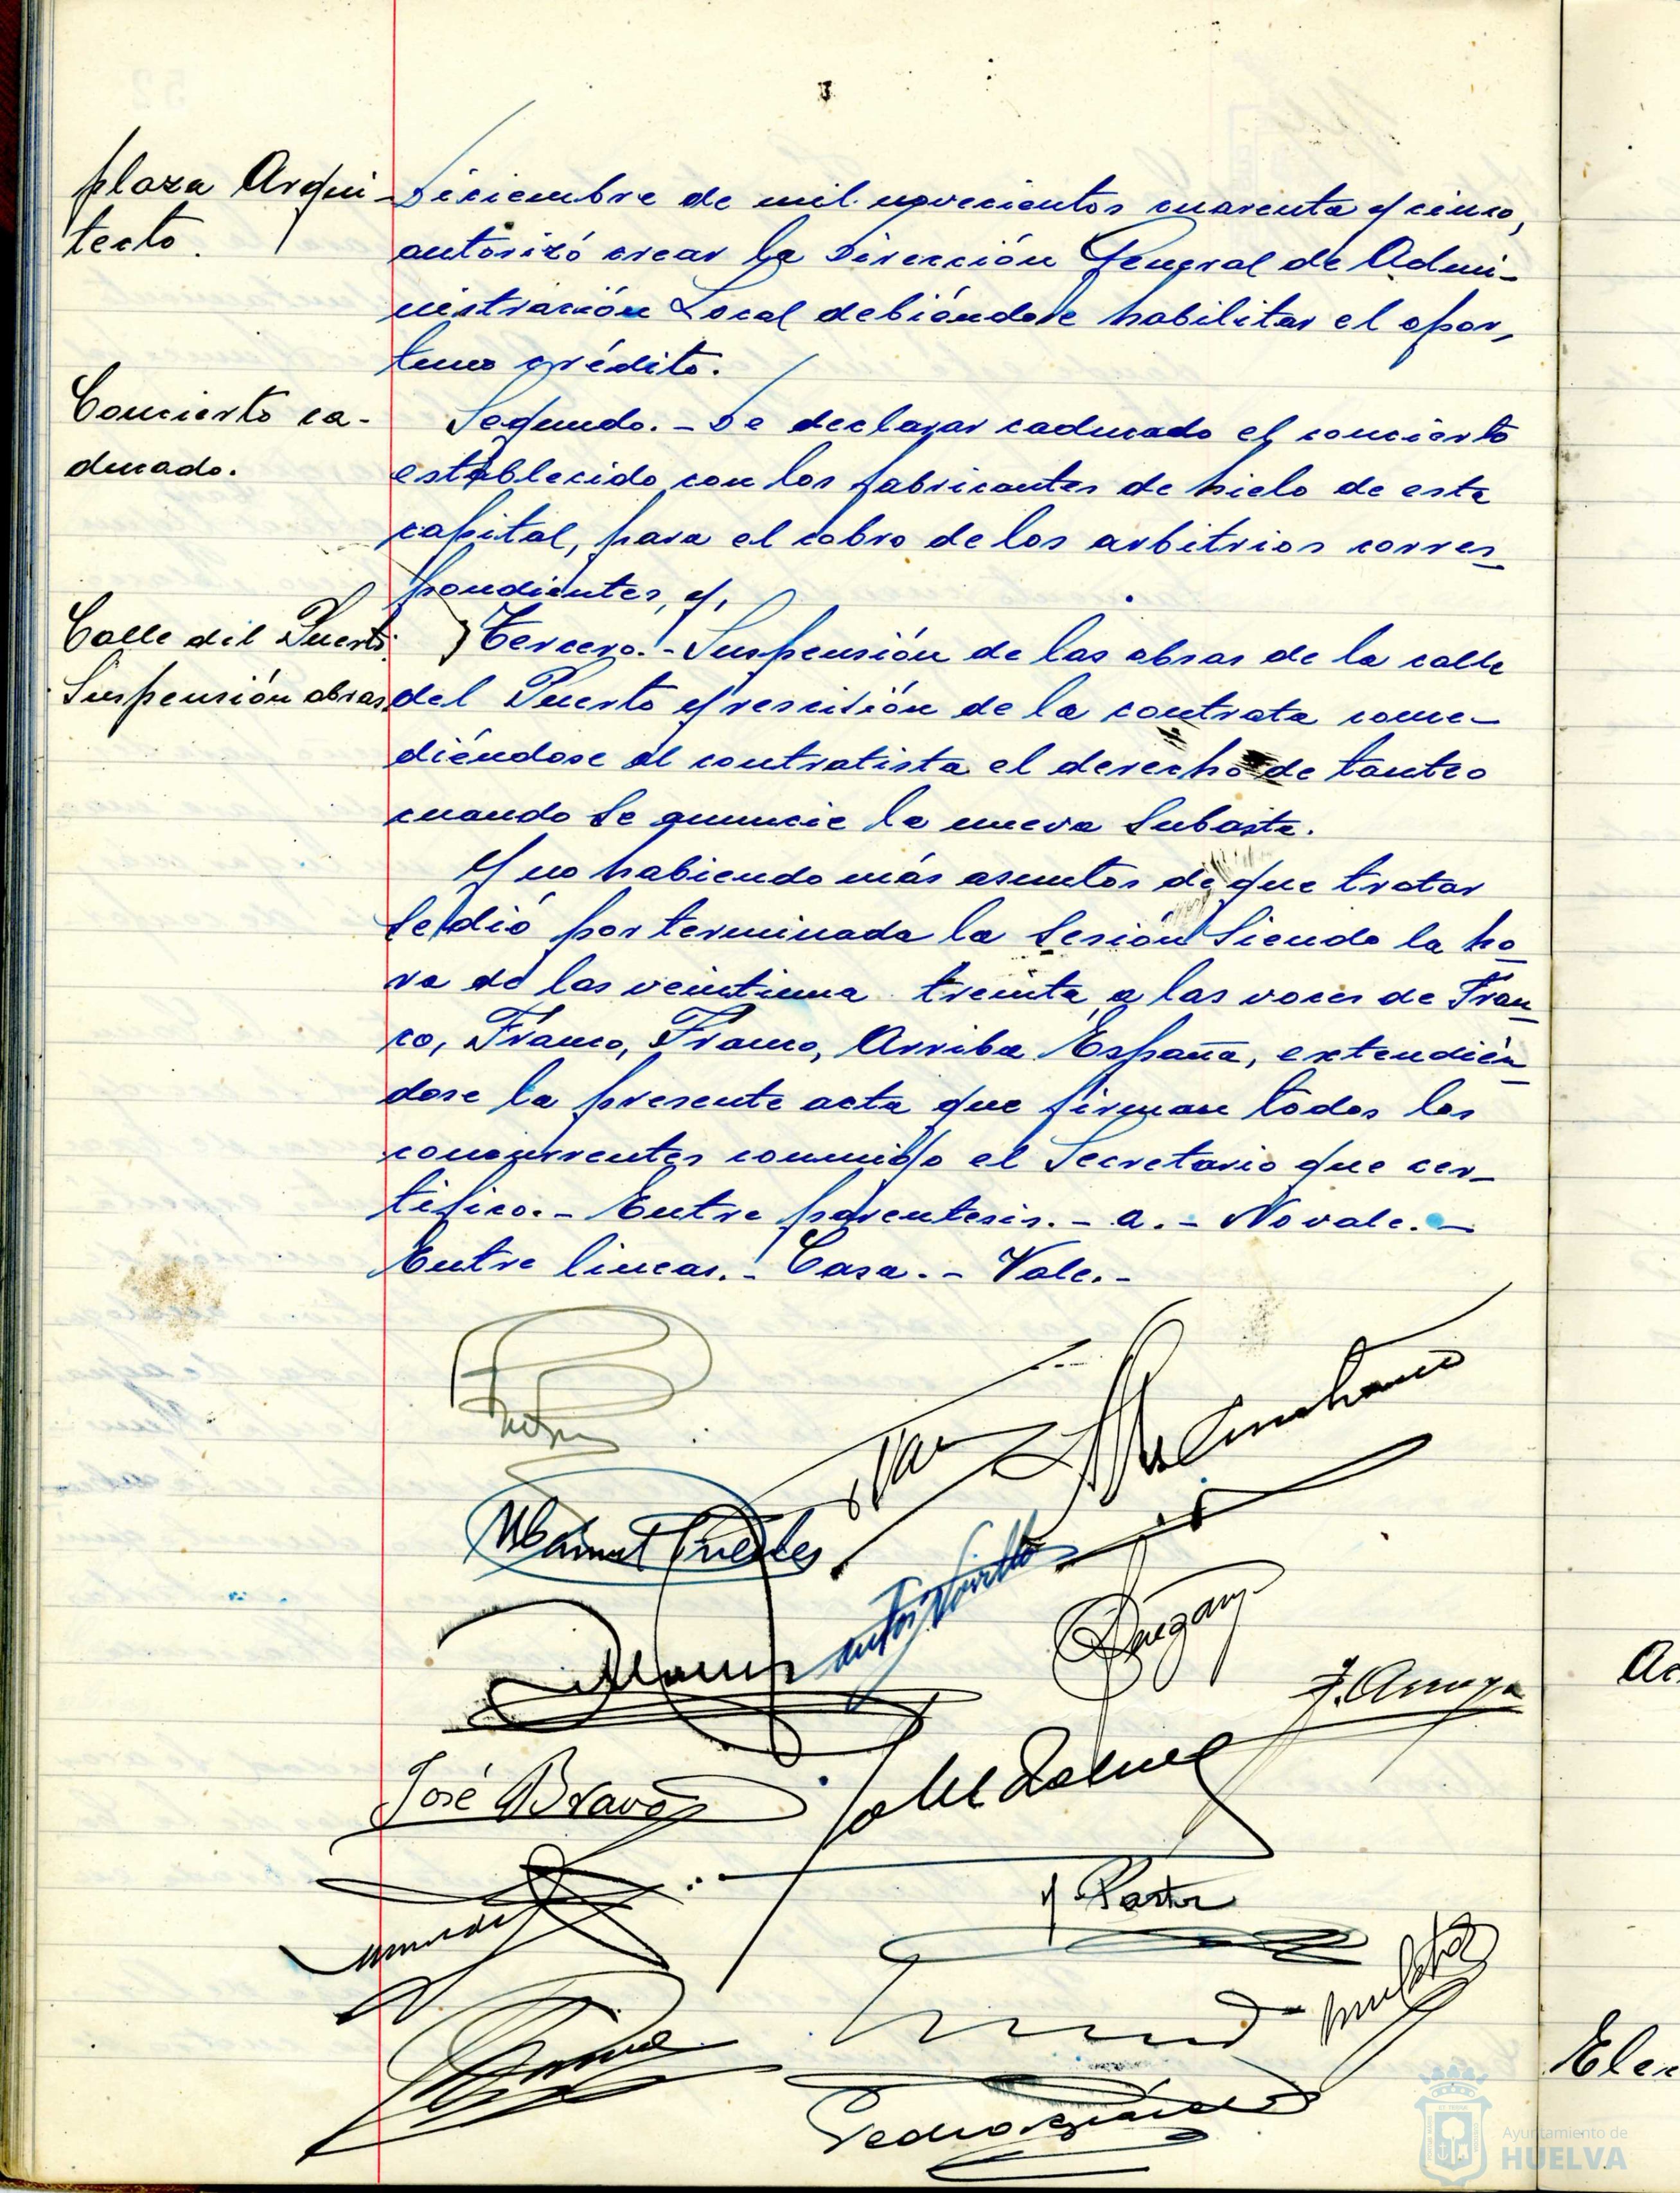 plaza Arqui-
tecto.
Diciembre de mil novecientos cuarenta y cinco,
autorizó crear la Dirección General de Admi-
nistración Local debiéndose habilitar el opor-
tuno crédito.
Concierto ca-
ducado.
Segundo.- De declarar caducado el concierto
establecido con los fabricantes de hielo de esta
capital, para el cobro de los arbitrios corres-
pondientes, y,
Calle del Puerto.
Suspensión obras.
Tercero.- Suspensión de las obras de la calle
del Puerto y rescisión de la contrata conce-
diéndose al contratista el derecho de tanteo
cuando se anuncie la nueva subasta.
Y no habiendo más asuntos de que tratar
se dió por terminada la sesión siendo la ho-
ra de las veintiuna treinta, a las voces de Fran-
co, Franco, Franco, Arriba España, extendién-
dose la presente acta que firman todos los
concurrentes conmigo el Secretario que cer-
tifico.- Entre parentesis.- a.- No vale.-
Entre lineas.- Casa.- Vale.-
José Bravo
Pedro
Ayuntamiento de
HUELVA